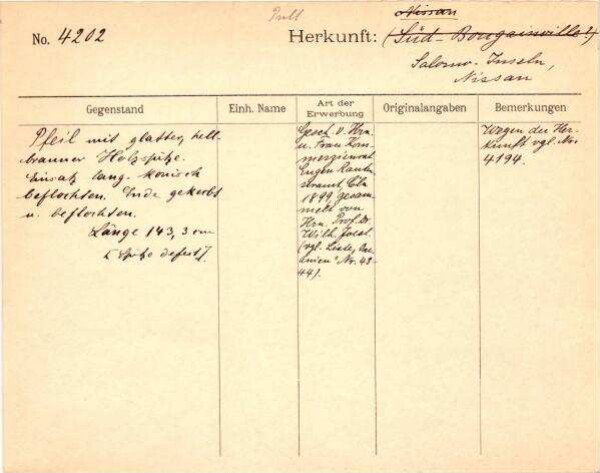 Nissan
No. 4202
Herkunft: (Süd-Bougainville?)
Salomo-Inseln,
Nissan
Gegenstand
Einh. Name
Art der Erwerbung
Originalangaben
Bemerkungen
Pfeil mit glatter, hell-
brauner Holzspitze.
Einsatz lang-konisch
beflochten. Ende gekerbt
u. beflochten.
Länge 143,3 cm
[Spitze defekt].
Gesch. v. Hrn.
u. Frau Kom-
merzienrat
Eugen Rauten-
strauch, Cöln
1899, gesam-
melt von
Hrn. Prof. Dr.
Wilh. Joest
(vgl. Liste
Nr. 43-
44).
Wegen der Her-
kunft vgl. No.
4194.